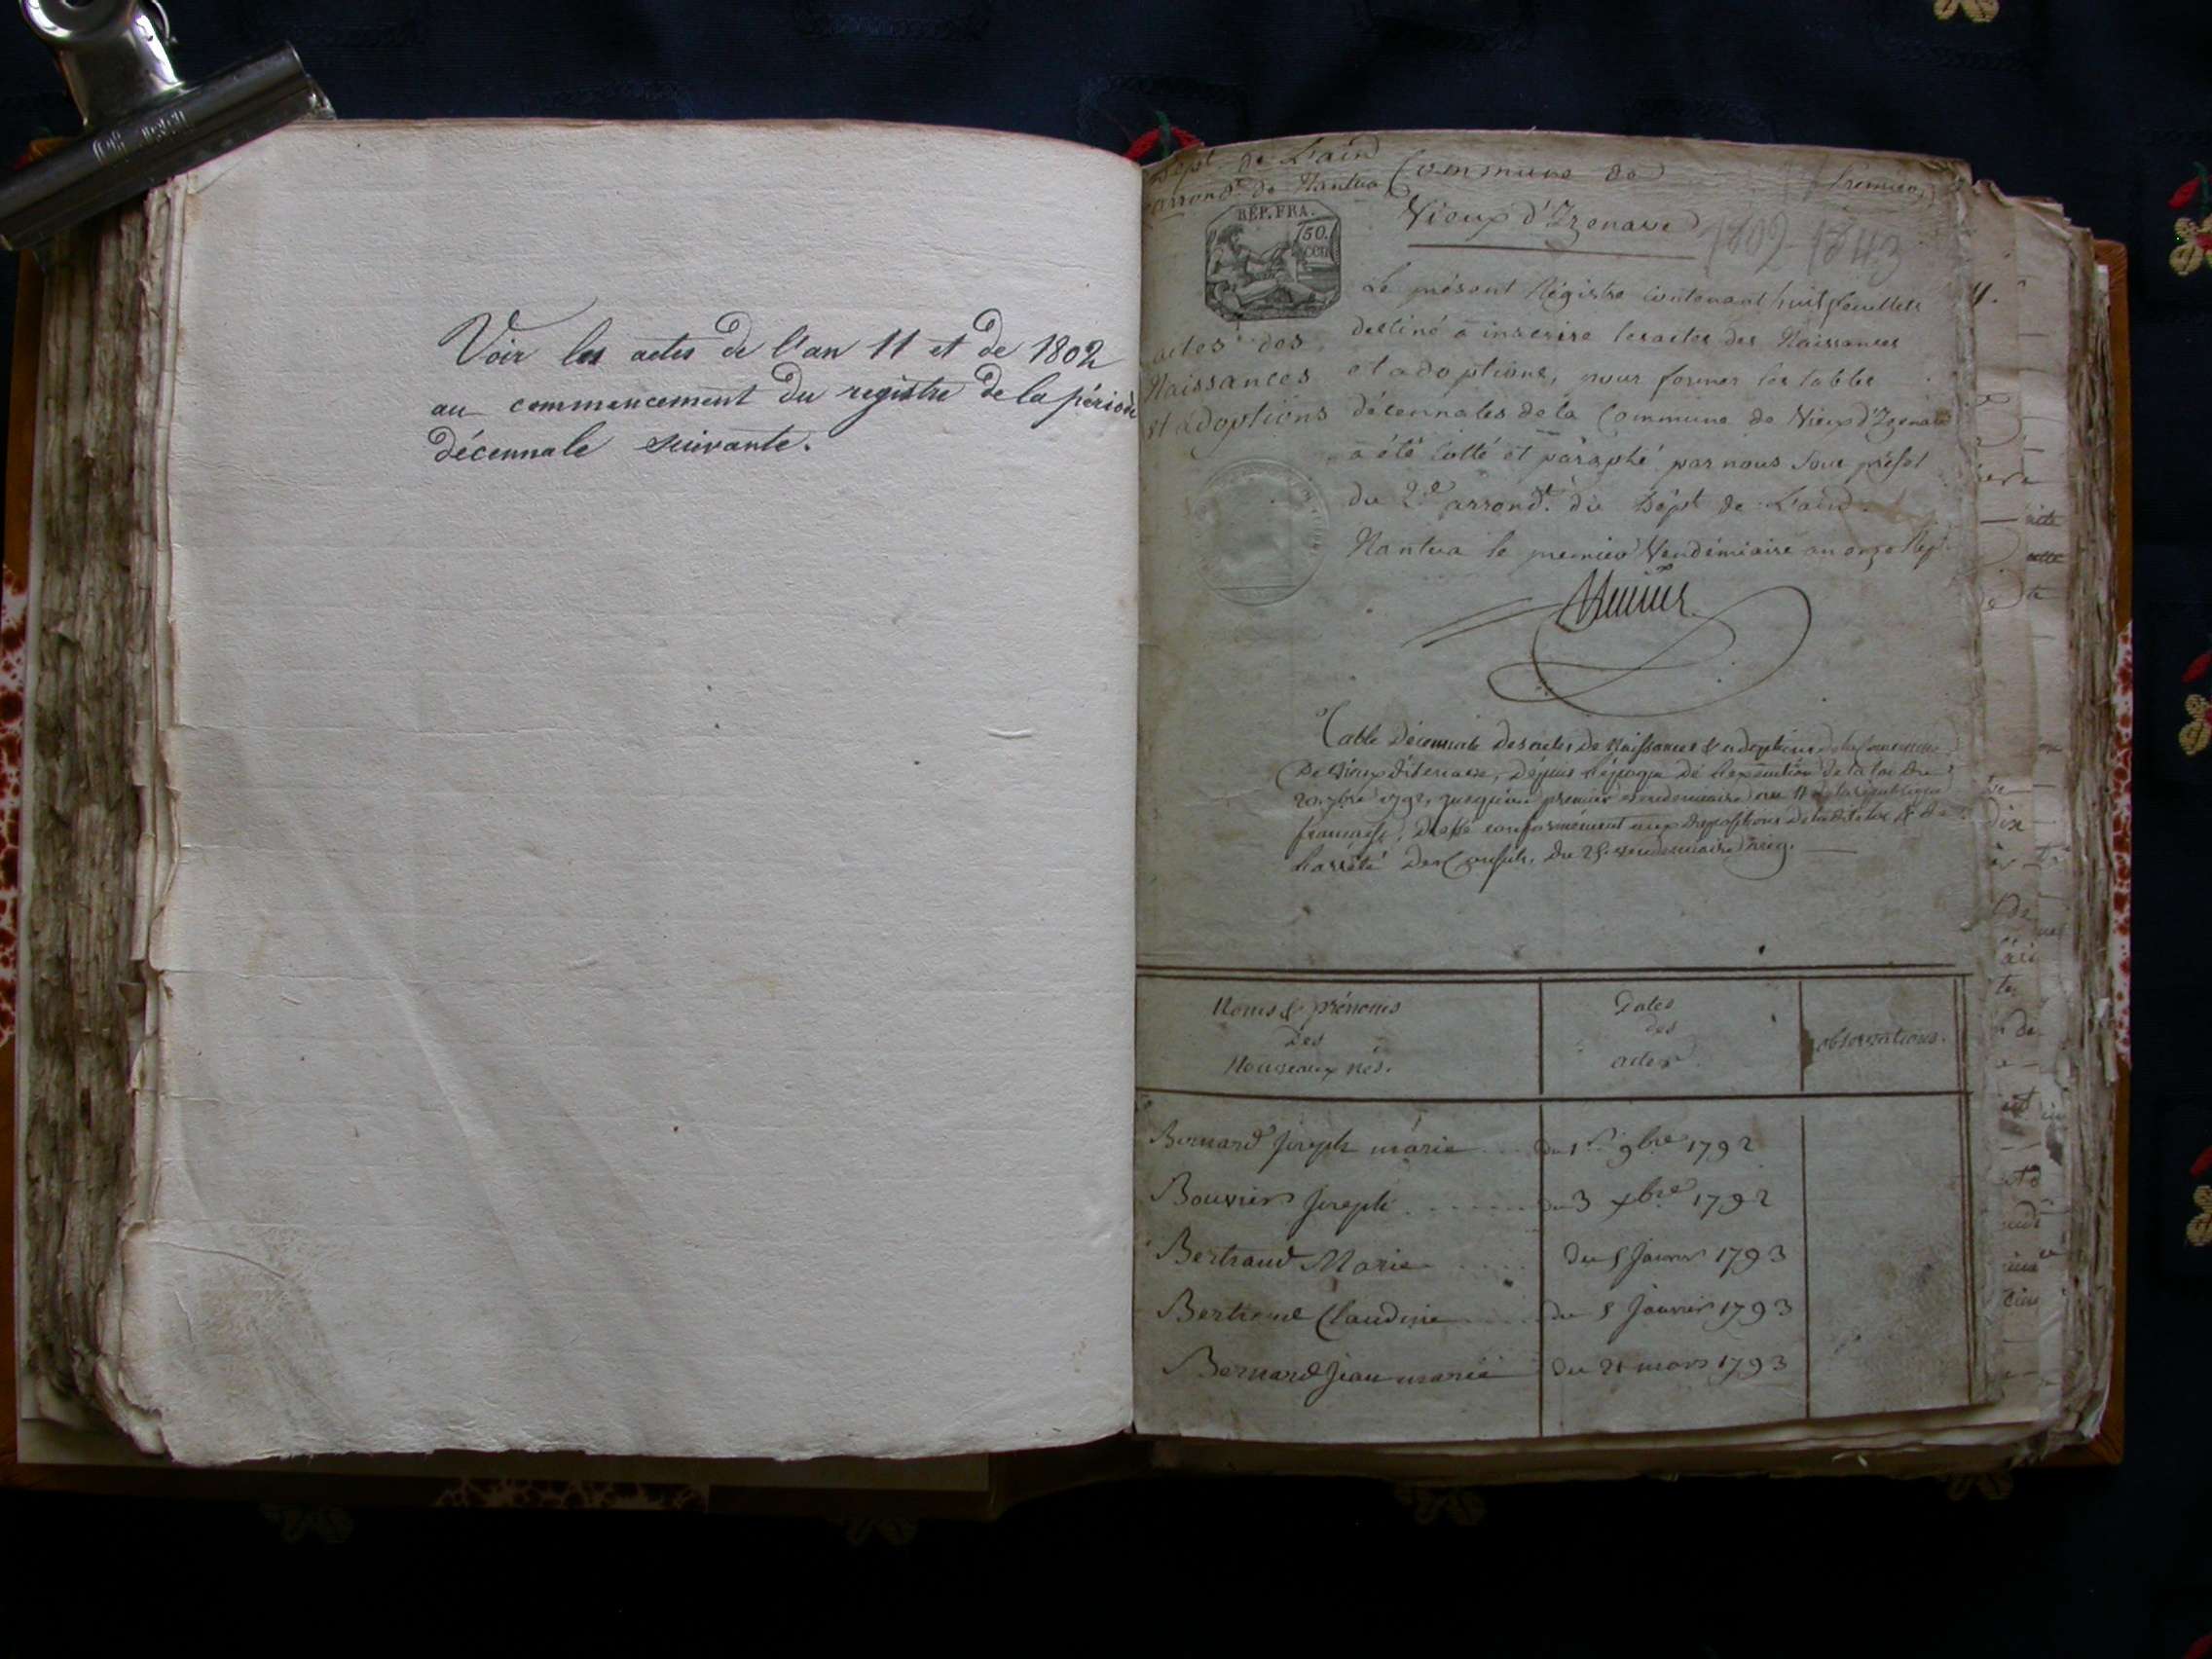 Voir les actes de l'an 11 et de 1802
au commencement du registre de la période
décennale suivante.
Dépt de L'ain
arrondt de Nantua
Commune de
Vieux d'Izenave
Premier
1802-1843
RÉP. FRA.
50.
CEN
actes des
Naissances
et adoptions
Le présent Régistre contenant huit feuillets
destiné a inscrire les actes des Naissances
et adoptions, pour former les tables
décennales de la Commune de Vieux d'Izenave
a été cotté et paraphé par nous Sous préfet
du 2e arrondt du Dépt de L'ain.
Nantua le premier Vendémiaire an onze Rep.
Table Décennale des actes de Naissances & adoptions de la Commune
De Vieux d'izenave, Depuis l'époque de l'exécution de la loi du
20 7bre 1792, jusqu'au premier vendemiaire an 11 de la république
française, Dressé conformément aux dispositions de la dite loi & de
l'arrêté Des Consuls, du 25 vendemiaire
Noms & prénoms
Des
Nouveaux nés.
Dates
des
actes
observations.
Bernard Joseph marie du 1er 9bre 1792
Bouvier Joseph du 3 xbre 1792
Bertrand Marie Du 5 Janvier 1793
Bertrand Claudine du 5 Janvier 1793
Bernard Jean marie Du 21 mars 1793